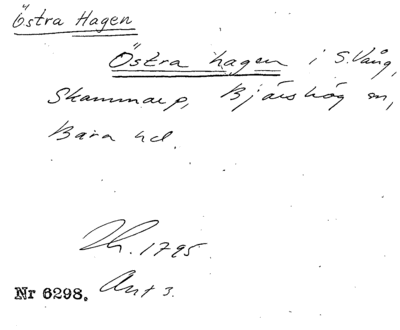 Östra Hagen
Östra hagen i S. Vång,
Skammarp, Bjärshög sn,
Bara hd.
Lh. 1795.
Nr 6298. Akt 3.